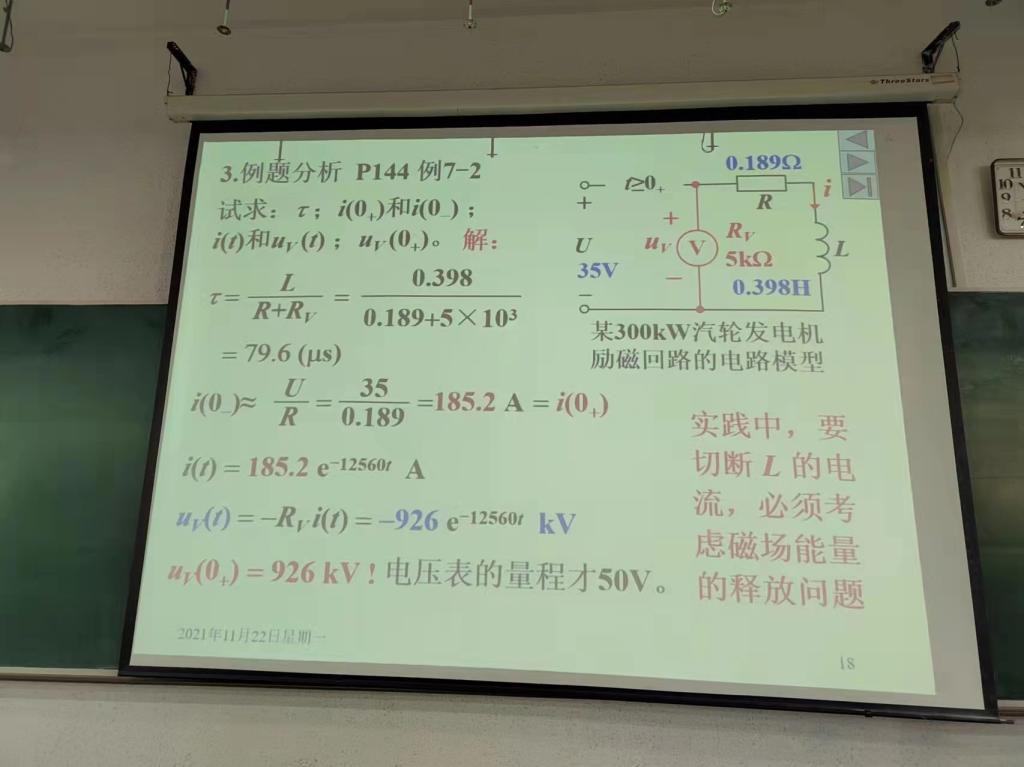 ThreeStars
3.例题分析 P144 例7-2
试求：τ；i(0₊)和i(0₋)；
i(t)和u_V(t)；u_V(0₊)。解：
τ = L/(R+R_V) = 0.398/(0.189+5×10³)
= 79.6 (μs)
i(0₋)≈ U/R = 35/0.189 =185.2 A = i(0₊)
i(t) = 185.2 e⁻¹²⁵⁶⁰ᵗ A
u_V(t) = −R_V i(t) = −926 e⁻¹²⁵⁶⁰ᵗ kV
u_V(0₊) = 926 kV ! 电压表的量程才50V。
0.189Ω
t≥0₊
R
i
+
+
R_V
U
u_V
V
5kΩ
L
35V
−
0.398H
−
某300kW汽轮发电机
励磁回路的电路模型
实践中，要
切断 L 的电
流，必须考
虑磁场能量
的释放问题
2021年11月22日星期一
18
11
10
9
8